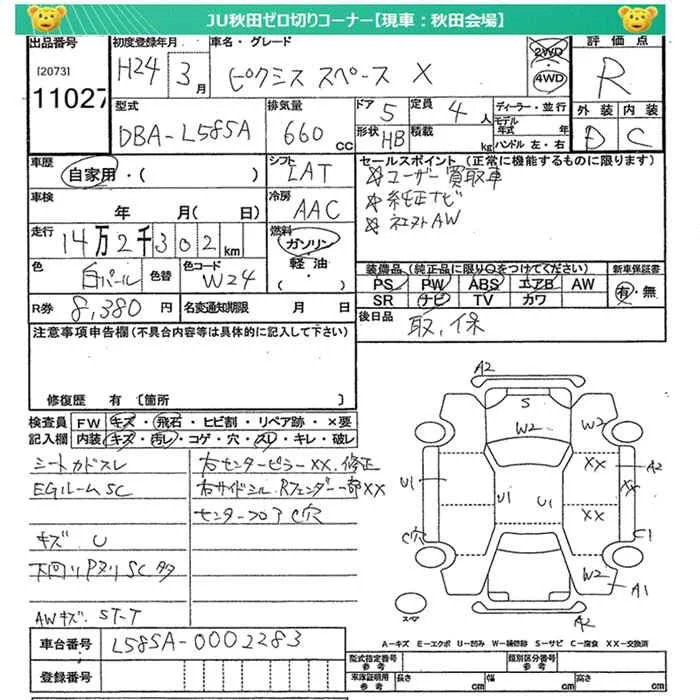 JU秋田ゼロ切りコーナー【現車：秋田会場】
出品番号 初度登録年月 車名・グレード 2WD 4WD 評価点
[2073] 11027 H24年 3月 ピクシス スペース X R
型式 DBA-L585A 排気量 660cc ドア 5 定員 4人 ディーラー・並行 外装 内装
形状 HB 積載 kg モデル年式 年 ハンドル 左・右 D C
車歴 自家用・( ) シフト LAT セールスポイント (正常に機能するものに限ります)
☆ユーザー買取車
車検 年 月( 日) 冷房 AAC ☆純正ナビ
☆社外AW
走行 14万2千302km 燃料 ガソリン 軽油・
色 白パール 色替 色コード W24 装備品(純正品に限り○をつけてください) 新車保証書
PS PW ABS エアB AW 有・無
SR ナビ TV カワ
R券 8,380円 名変通知期限 月 日 後日品 取,保
注意事項申告欄(不具合内容等は具体的に記入して下さい)
修復歴 有 〔箇所 〕
検査員記入欄 FW キズ・飛石・ヒビ割・リペア跡・×要
内装 キズ・汚レ・コゲ・穴・スレ・キレ・破レ
シートカドスレ 右センターピラーXX,修正
EGルームSC 右サイドシル,Rフェンダー一部XX
センターフロアC穴
キズ U
下回りPヌリSC多
AWキズ.ST-T
A2
S
W2 W2
XX A2
U1 U1 U1
XX
C穴 C1
W2 A1
スペア A2
A-キズ E-エクボ U-凹み W-補修跡 S-サビ C-腐食 XX-交換済
車台番号 L585A-0002283
登録番号
型式指定番号 参考 類別区分番号 参考
車庫証明用 参考 長さ cm 幅 cm 高さ cm